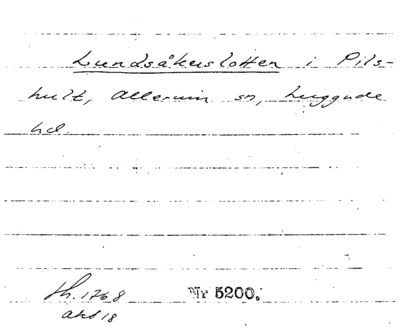 Lundsåkerslotten i Pils-
hult, Allerum sn, Luggude
hd.
Sk. 1768
akt 18
Nr 5200.